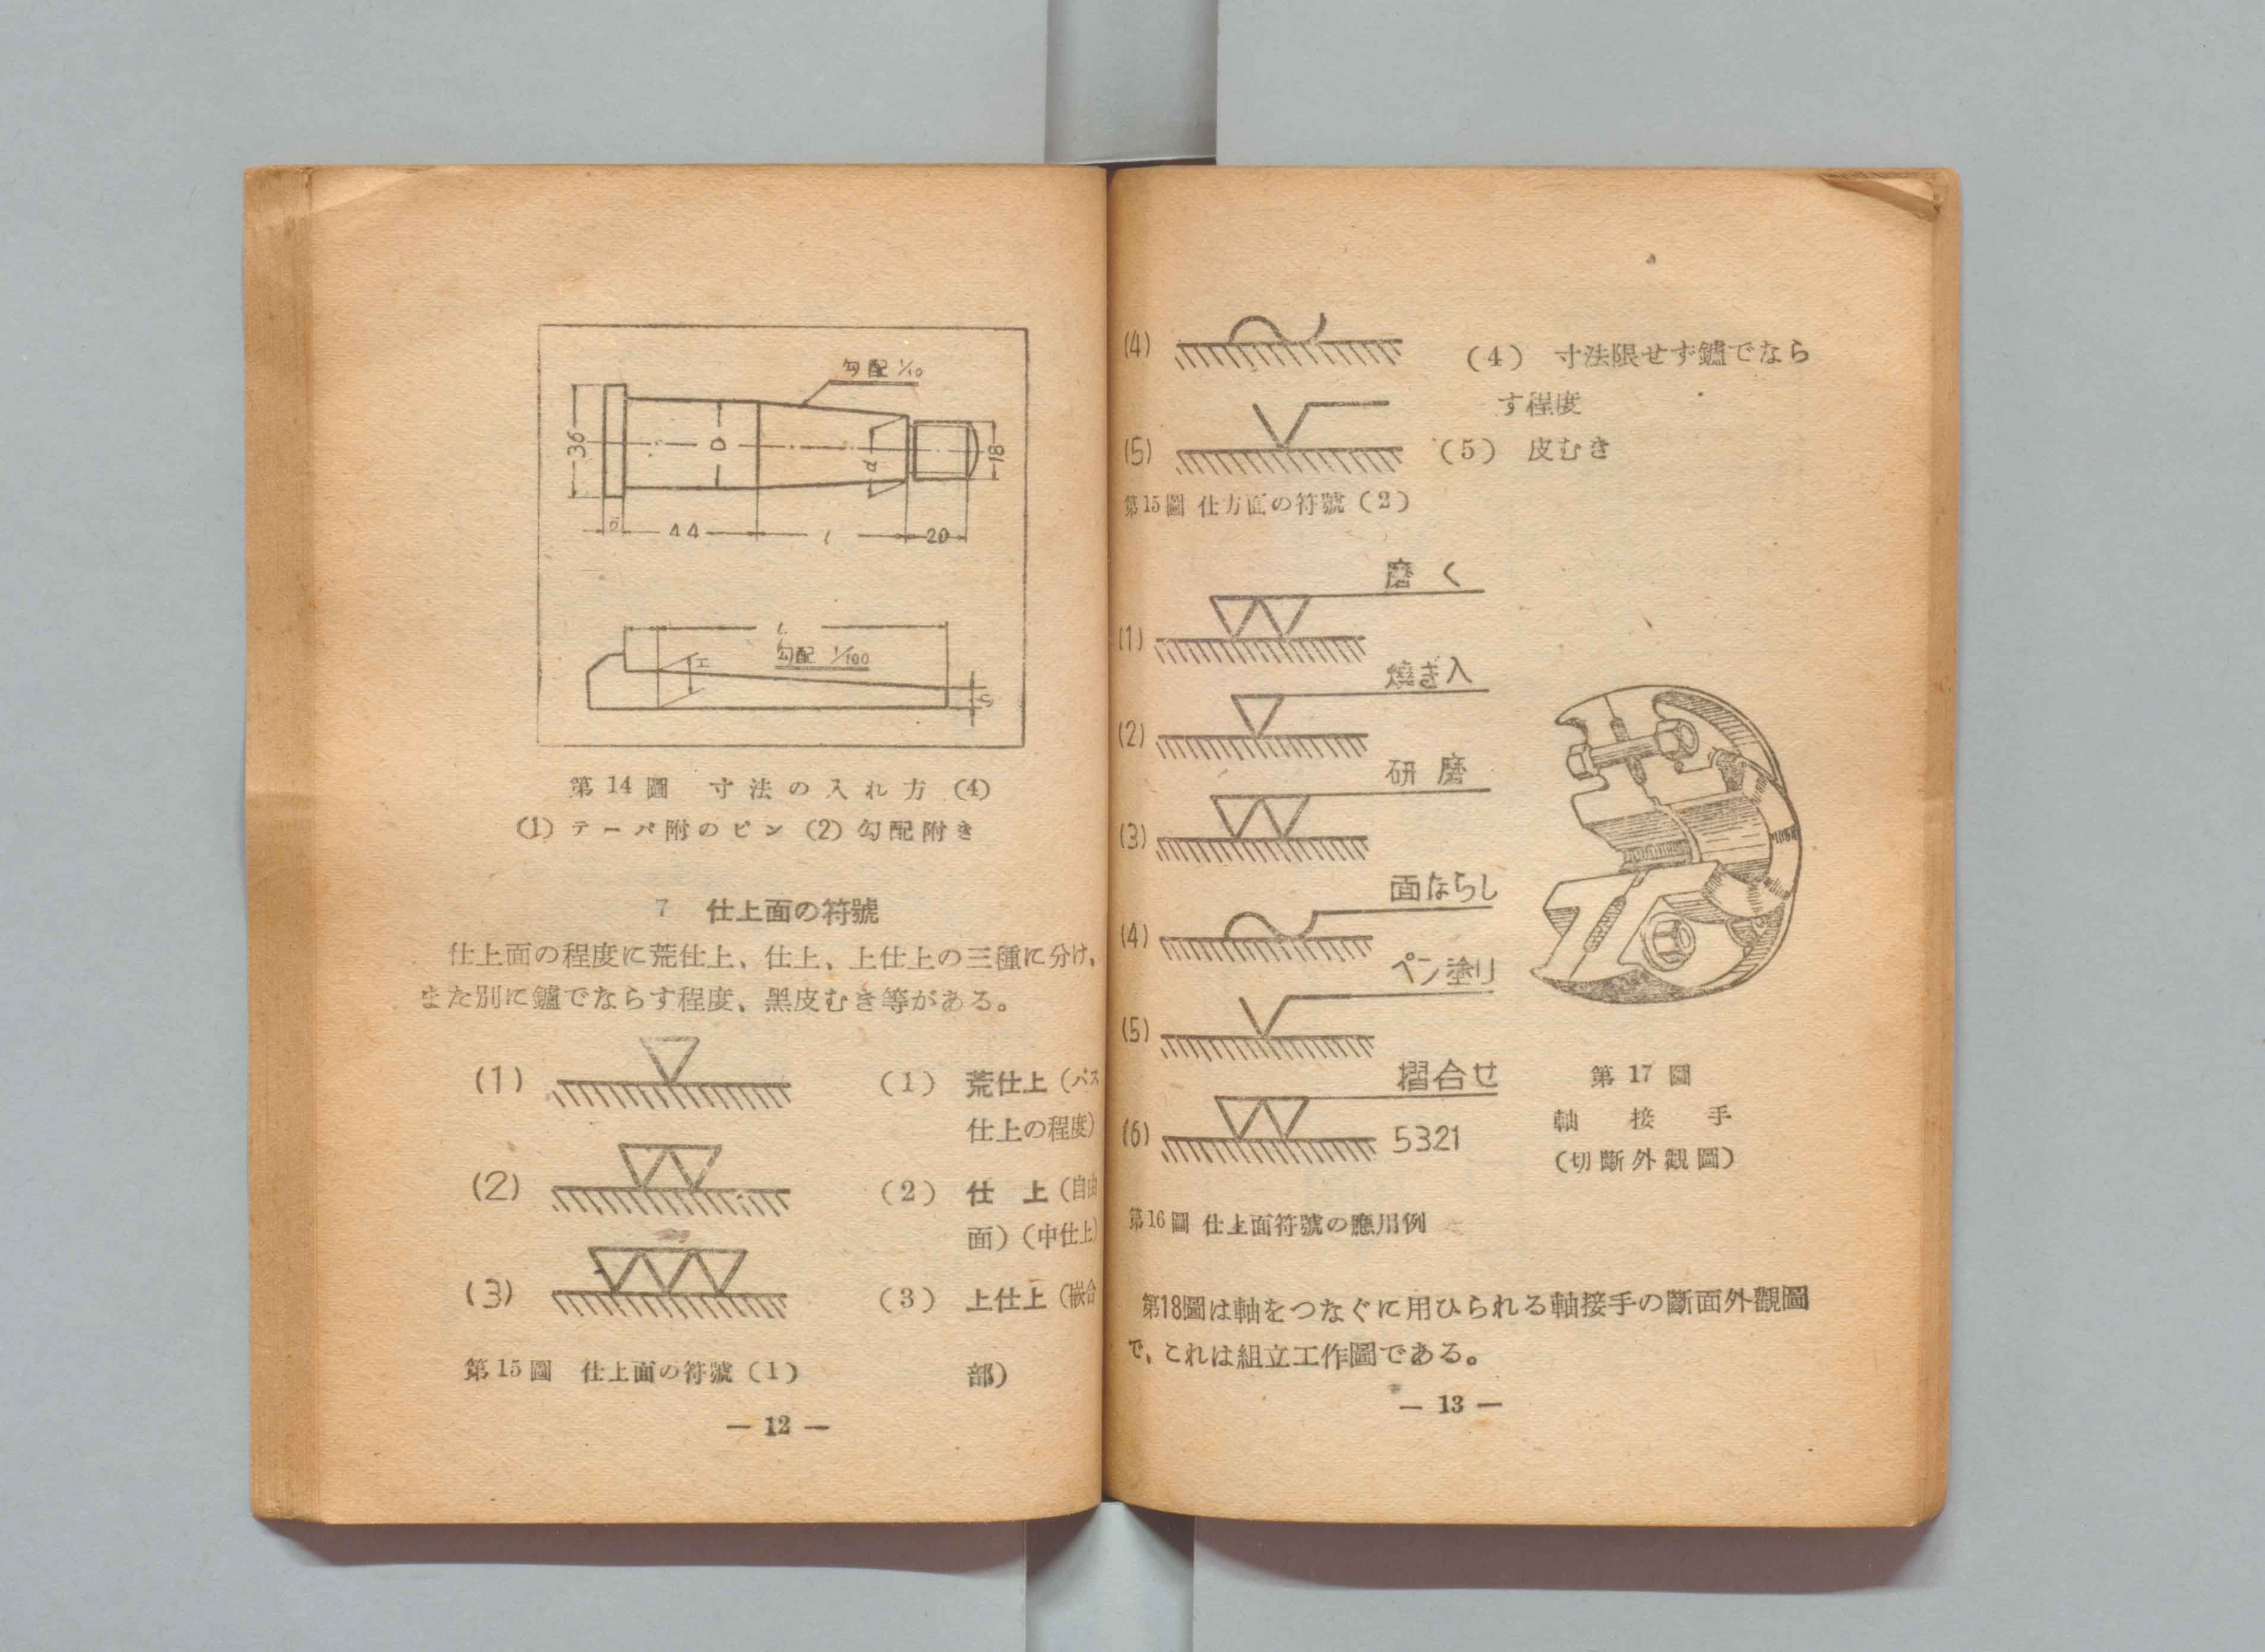 勾配 1/10
36
D
d
18
44
l
20
L
勾配 1/100
H
第14圖 寸法の入れ方 (4)
(1) テーパ附のピン (2) 勾配附き
7 仕上面の符號
仕上面の程度に荒仕上、仕上、上仕上の三種に分け、
また別に鑪でならす程度、黑皮むき等がある。
(1)
(1) 荒仕上(パス
仕上の程度)
(2)
(2) 仕 上(自由
面)(中仕上)
(3)
(3) 上仕上(嵌合
部)
第15圖 仕上面の符號(1)
— 12 —
(4)
(4) 寸法限せず鑪でなら
す程度
(5)
(5) 皮むき
第15圖 仕方面の符號(2)
磨く
(1)
燒き入
(2)
研磨
(3)
面ならし
(4)
ペン塗り
(5)
摺合せ
(6)
5321
第16圖 仕上面符號の應用例
第17圖
軸接手
(切斷外觀圖)
第18圖は軸をつなぐに用ひられる軸接手の斷面外觀圖
で、これは組立工作圖である。
— 13 —